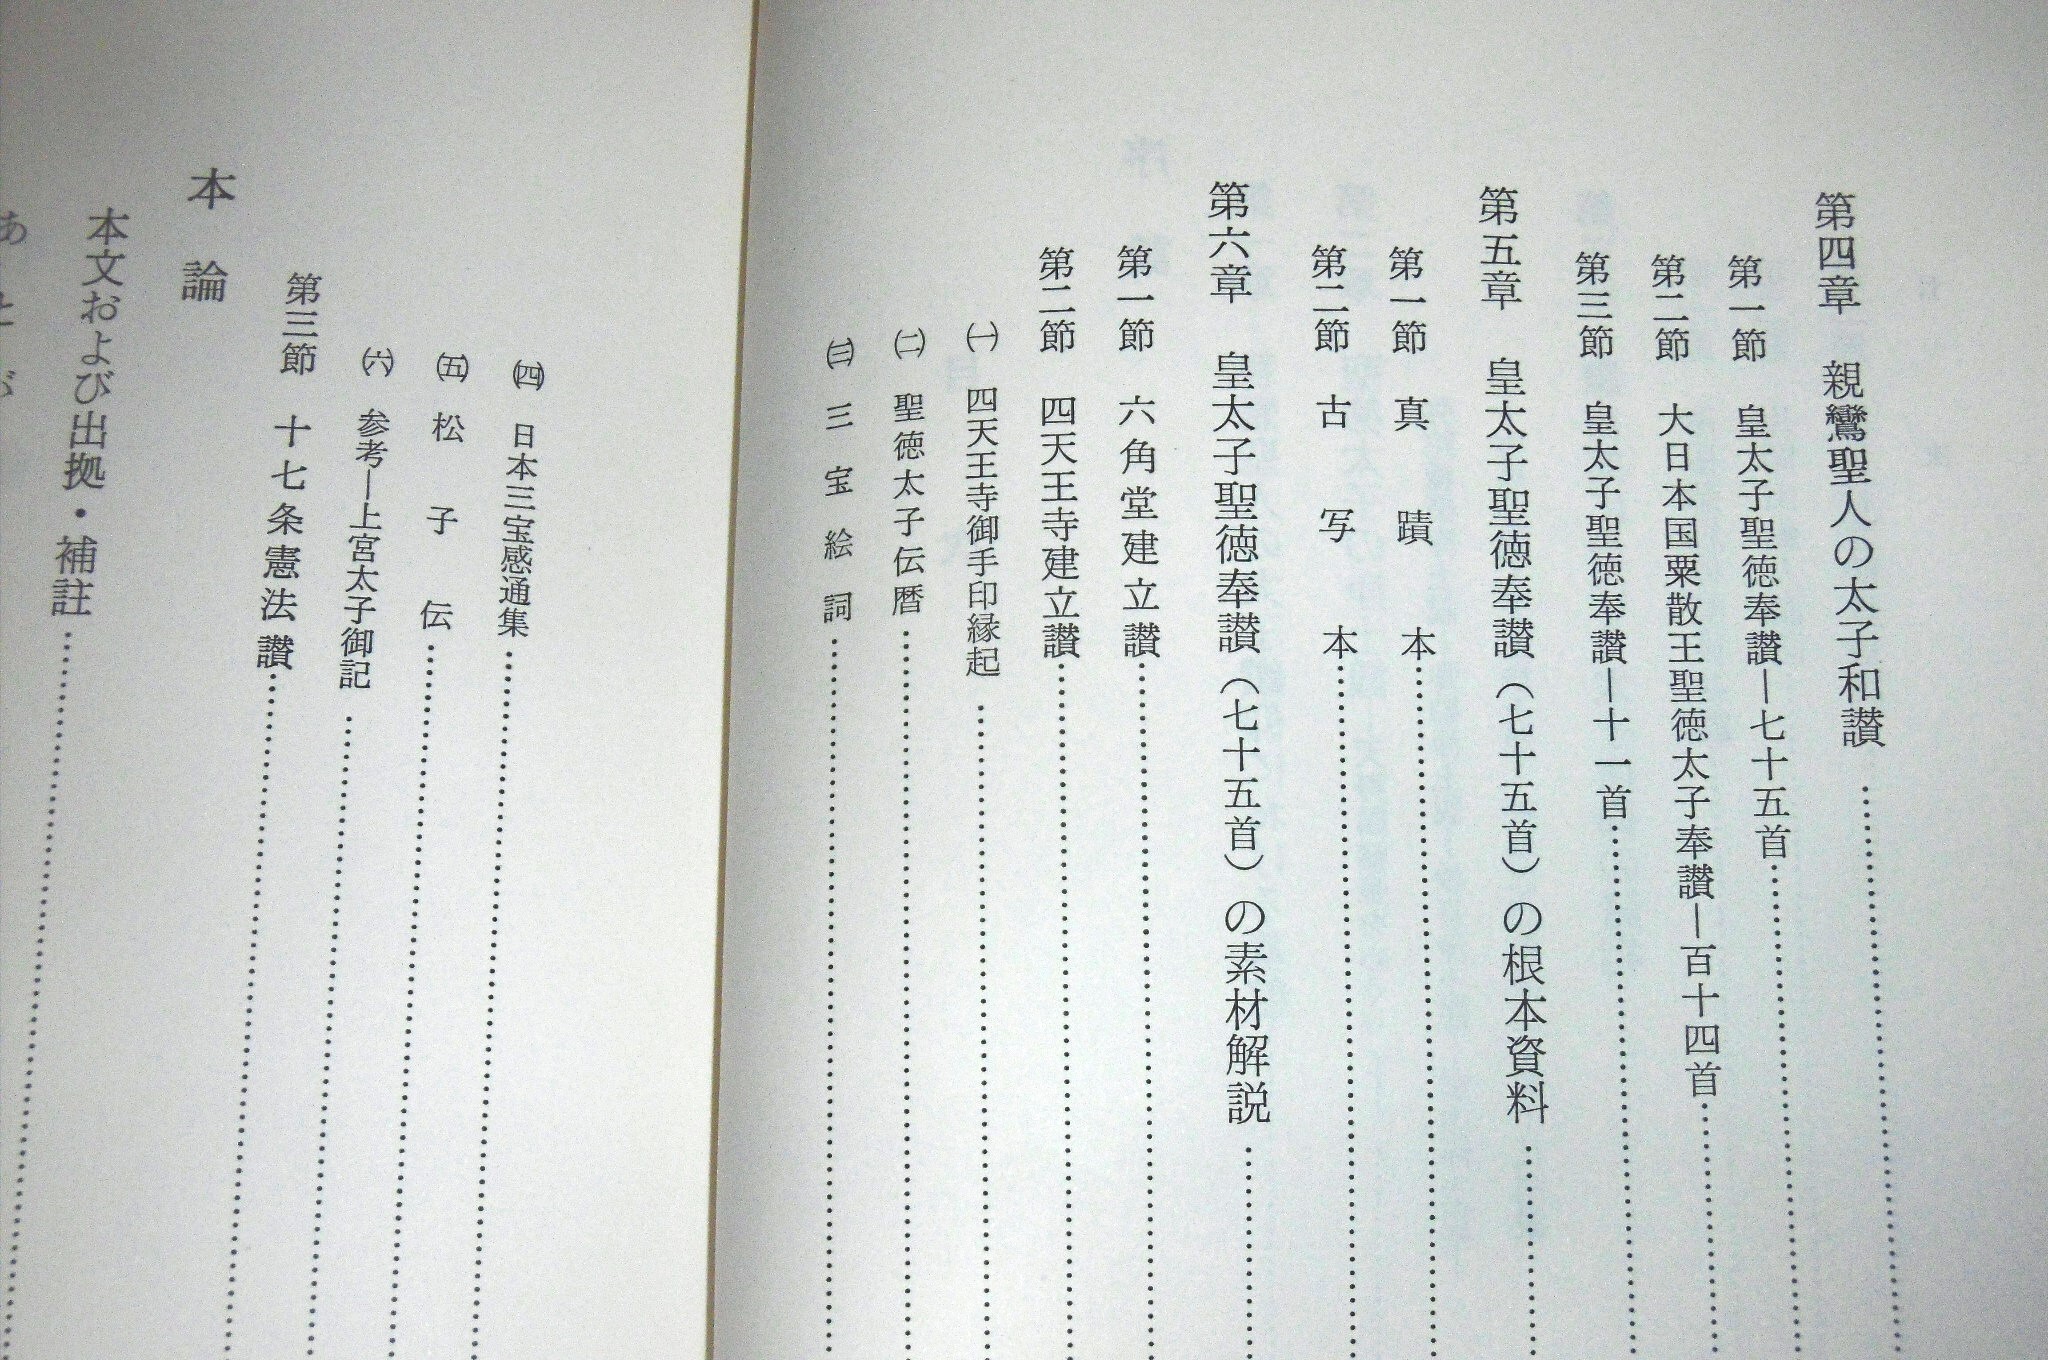 第四章　親鸞聖人の太子和讃
第一節　皇太子聖徳奉讃―七十五首
第二節　大日本国粟散王聖徳太子奉讃―百十四首
第三節　皇太子聖徳奉讃―十一首
第五章　皇太子聖徳奉讃（七十五首）の根本資料
第一節　真蹟本
第二節　古写本
第六章　皇太子聖徳奉讃（七十五首）の素材解説
第一節　六角堂建立讃
第二節　四天王寺建立讃
㈠　四天王寺御手印縁起
㈡　聖徳太子伝暦
㈢　三宝絵詞
㈣　日本三宝感通集
㈤　松子伝
㈥　参考―上宮太子御記
第三節　十七条憲法讃
本論
本文および出拠・補註
あとが